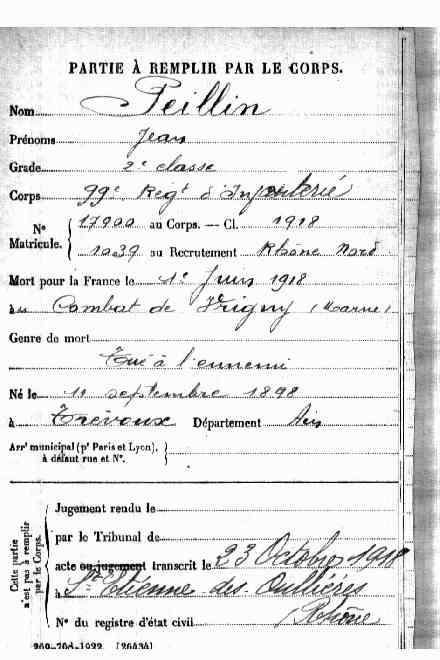 PARTIE À REMPLIR PAR LE CORPS.
Nom Peillin
Prénoms Jean
Grade 2e classe
Corps 99e Regt d'Infanterie
No Matricule. 17900 au Corps. — Cl. 1918
1039 au Recrutement Rhône Nord
Mort pour la France le 1er Juin 1918
au Combat de Vrigny (Marne)
Genre de mort
Tué à l'ennemi
Né le 11 septembre 1898
à Trévoux Département Ain
Arrt municipal (pr Paris et Lyon),
à défaut rue et No.
Cette partie n'est pas à remplir par le Corps.
Jugement rendu le
par le Tribunal de
acte ou jugement transcrit le 23 Octobre 1918
à St Etienne des Oullières
Rhône
No du registre d'état civil
260-708-1922. [26434]